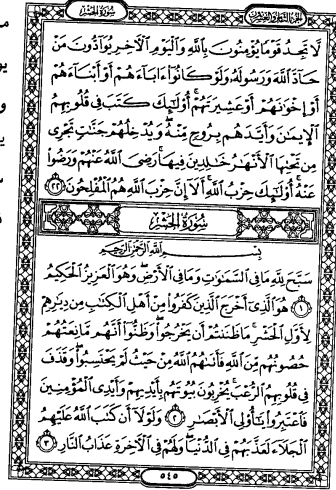 سُورَةُ الحَشْرِ
لَا تَجِدُ قَوْمًا يُؤْمِنُونَ بِاللَّهِ وَالْيَوْمِ الْآخِرِ يُوَآدُّونَ مَنْ
حَآدَّ اللَّهَ وَرَسُولَهُ وَلَوْ كَانُوٓا۟ ءَابَآءَهُمْ أَوْ أَبْنَآءَهُمْ
أَوْ إِخْوَانَهُمْ أَوْ عَشِيرَتَهُمْ أُو۟لَٰٓئِكَ كَتَبَ فِى قُلُوبِهِمُ
الْإِيمَٰنَ وَأَيَّدَهُم بِرُوحٍ مِّنْهُ وَيُدْخِلُهُمْ جَنَّٰتٍ تَجْرِى
مِن تَحْتِهَا الْأَنْهَٰرُ خَٰلِدِينَ فِيهَا رَضِىَ اللَّهُ عَنْهُمْ وَرَضُوا۟
عَنْهُ أُو۟لَٰٓئِكَ حِزْبُ اللَّهِ أَلَآ إِنَّ حِزْبَ اللَّهِ هُمُ الْمُفْلِحُونَ ٢٢
سُورَةُ الحَشْرِ
بِسْمِ اللَّهِ الرَّحْمَٰنِ الرَّحِيمِ
سَبَّحَ لِلَّهِ مَا فِى السَّمَٰوَٰتِ وَمَا فِى الْأَرْضِ وَهُوَ الْعَزِيزُ الْحَكِيمُ
١ هُوَ الَّذِىٓ أَخْرَجَ الَّذِينَ كَفَرُوا۟ مِنْ أَهْلِ الْكِتَٰبِ مِن دِيَٰرِهِمْ
لِأَوَّلِ الْحَشْرِ مَا ظَنَنتُمْ أَن يَخْرُجُوا۟ وَظَنُّوٓا۟ أَنَّهُم مَّانِعَتُهُمْ
حُصُونُهُم مِّنَ اللَّهِ فَأَتَىٰهُمُ اللَّهُ مِنْ حَيْثُ لَمْ يَحْتَسِبُوا۟ وَقَذَفَ
فِى قُلُوبِهِمُ الرُّعْبَ يُخْرِبُونَ بُيُوتَهُم بِأَيْدِيهِمْ وَأَيْدِى الْمُؤْمِنِينَ
فَاعْتَبِرُوا۟ يَٰٓأُو۟لِى الْأَبْصَٰرِ ٢ وَلَوْلَآ أَن كَتَبَ اللَّهُ عَلَيْهِمُ
الْجَلَآءَ لَعَذَّبَهُمْ فِى الدُّنْيَا وَلَهُمْ فِى الْآخِرَةِ عَذَابُ النَّارِ ٣
٥٤٥